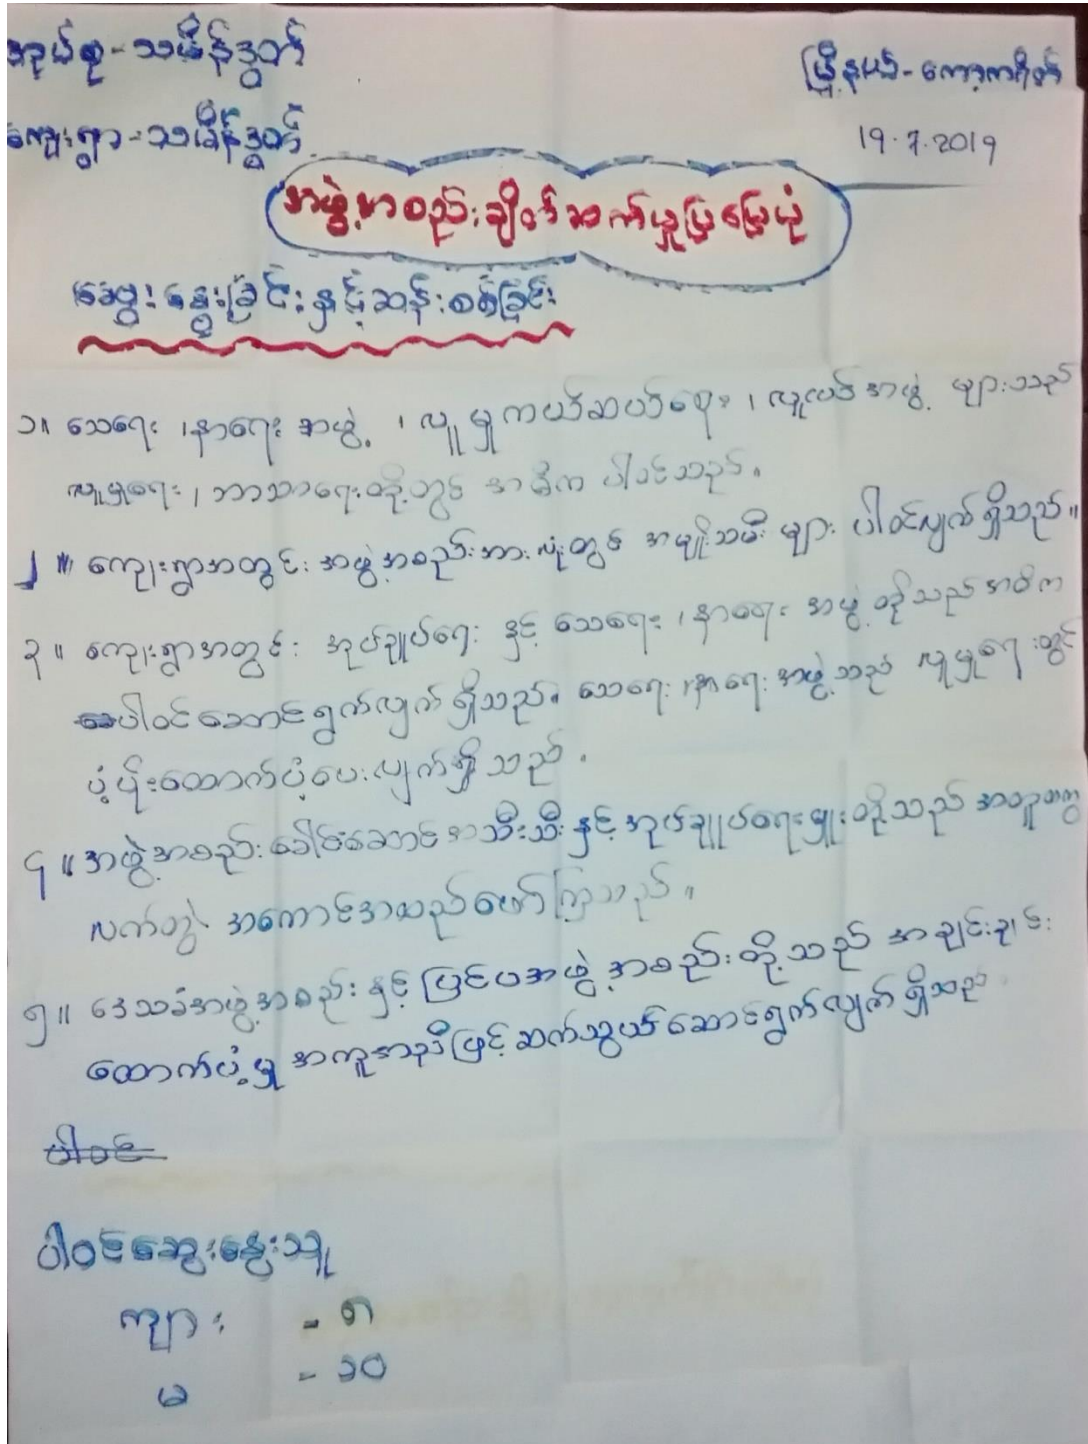 အုပ်စု-သမိန်ဒွတ်
မြို့နယ်-ကော့ကရိတ်
ကျေးရွာ-သမိန်ဒွတ်
19.7.2019
အဖွဲ့အစည်းချိတ်ဆက်မှုပြမြေပုံ
ဆွေးနွေးခြင်းနှင့်ဆန်းစစ်ခြင်း
၁။ သေရေး၊နာရေး အဖွဲ့၊ လူမှုကယ်ဆယ်ရေး၊ လူငယ်အဖွဲ့ များသည်
လူမှုရေး၊ဘာသာရေးတို့တွင် အဓိက ပါဝင်သည်။
၂။ ကျေးရွာအတွင်း အဖွဲ့အစည်းအားလုံးတွင် အမျိုးသမီး များ ပါဝင်လျက်ရှိသည်။
၃။ ကျေးရွာအတွင်း အုပ်ချုပ်ရေး နှင့် သေရေး၊နာရေး အဖွဲ့တို့သည်အဓိက
ပါဝင်ဆောင်ရွက်လျက်ရှိသည်။ သေရေး၊နာရေးအဖွဲ့သည် လူမှုရေးတွင်
ပံ့ပိုးထောက်ပံ့ပေးလျက်ရှိသည်။
၄။ အဖွဲ့အစည်းခေါင်းဆောင်အသီးသီးနှင့်အုပ်ချုပ်ရေးမှူးတို့သည် အတူတကွ
လက်တွဲ အကောင်အထည်ဖော်ကြသည်။
၅။ ဒေသခံအဖွဲ့အစည်းနှင့်ပြင်ပအဖွဲ့အစည်းတို့သည် အချင်းချင်း
ထောက်ပံ့မှု အကူအညီဖြင့်ဆက်သွယ်ဆောင်ရွက်လျက်ရှိသည်
ပါဝင်
ပါဝင်ဆွေးနွေးသူ
ကျား - ၈
မ - ၁၀